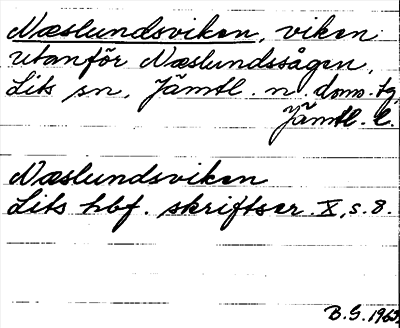 Næslundsviken, viken
utanför Næslundssågen,
Lits sn, Jämtl. n. doms. tg,
Jämtl. l.
Næslundsviken
Lits hbf. skriftser. X, s. 8.
B.G. 1963.